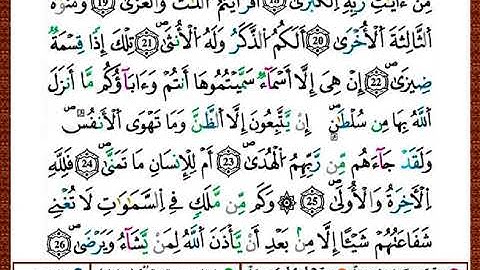 مِنْ ءَايَٰتِ رَبِّهِ ٱلْكُبْرَىٰٓ ﴿18﴾ أَفَرَءَيْتُمُ ٱللَّٰتَ وَٱلْعُزَّىٰ ﴿19﴾ وَمَنَوٰةَ
ٱلثَّالِثَةَ ٱلْأُخْرَىٰٓ ﴿20﴾ أَلَكُمُ ٱلذَّكَرُ وَلَهُ ٱلْأُنثَىٰ ﴿21﴾ تِلْكَ إِذًا قِسْمَةٌ
ضِيزَىٰٓ ﴿22﴾ إِنْ هِىَ إِلَّآ أَسْمَآءٌ سَمَّيْتُمُوهَآ أَنتُمْ وَءَابَآؤُكُم مَّآ أَنزَلَ
ٱللَّهُ بِهَا مِن سُلْطَٰنٍ ۚ إِن يَتَّبِعُونَ إِلَّا ٱلظَّنَّ وَمَا تَهْوَى ٱلْأَنفُسُ ۖ
وَلَقَدْ جَآءَهُم مِّن رَّبِّهِمُ ٱلْهُدَىٰٓ ﴿23﴾ أَمْ لِلْإِنسَٰنِ مَا تَمَنَّىٰ ﴿24﴾ فَلِلَّهِ
ٱلْءَاخِرَةُ وَٱلْأُولَىٰ ﴿25﴾ ۞ وَكَم مِّن مَّلَكٍ فِى ٱلسَّمَٰوَٰتِ لَا تُغْنِى
شَفَٰعَتُهُمْ شَيْـًٔا إِلَّا مِنۢ بَعْدِ أَن يَأْذَنَ ٱللَّهُ لِمَن يَشَآءُ وَيَرْضَىٰٓ ﴿26﴾